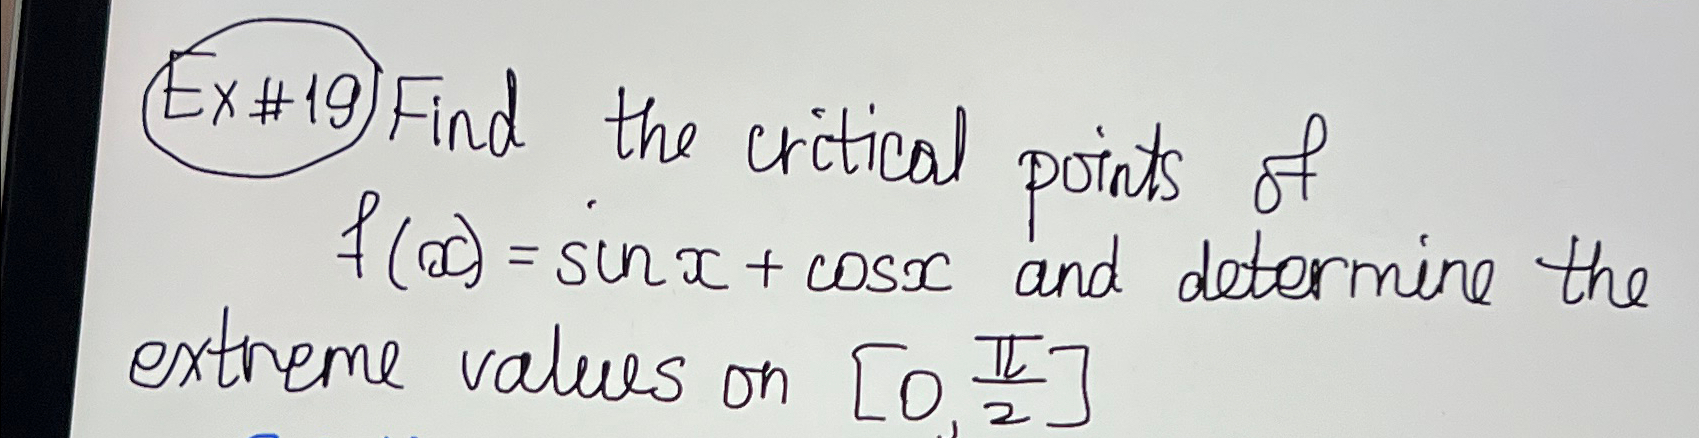 Ex#19 Find the critical points of
f(x) = sinx + cosx and determine the
extreme values on [0, π/2]